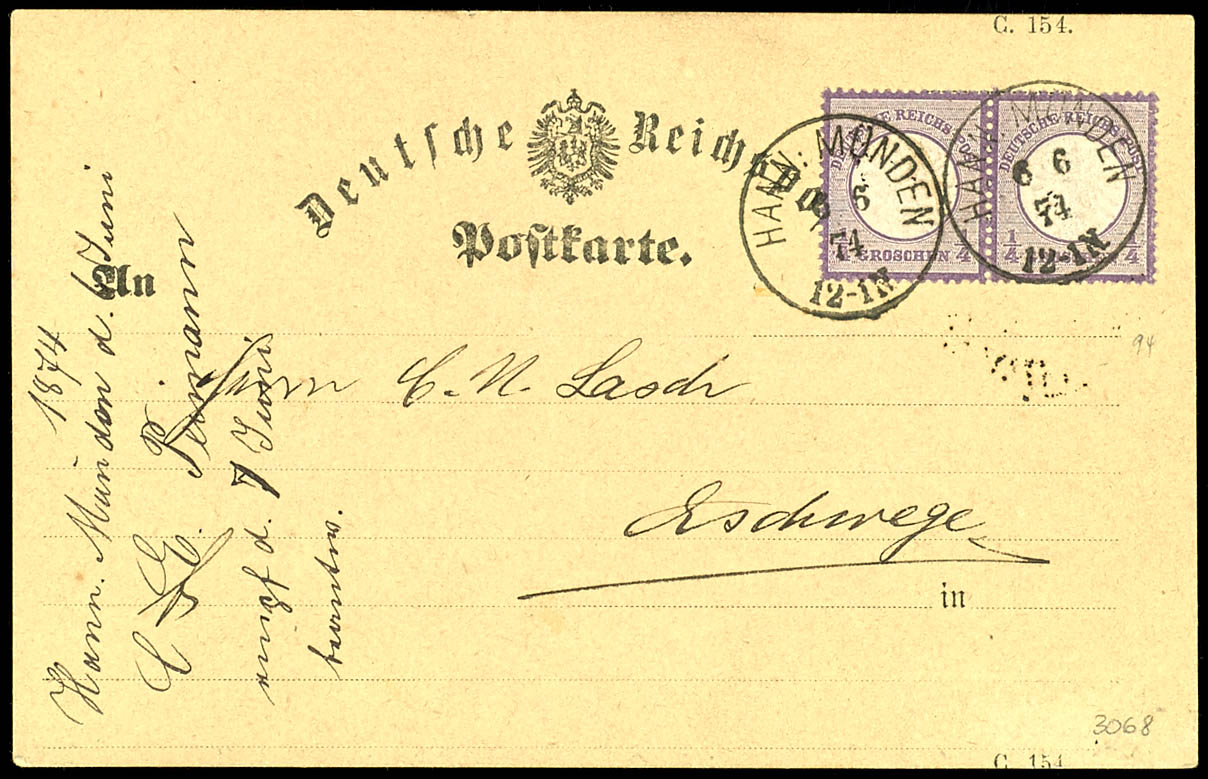 C. 154.
Deutsche Reichspost
Postkarte.
DEUTSCHE REICHS-POST
1/4 GROSCHEN 1/4
DEUTSCHE REICHS-POST
1/4 1/4
HANN: MÜNDEN
6
74
12-1N
HANN: MÜNDEN
6 6
74
12-1N
An
94
Herrn C. N. Lasch
Eschwege
in
1874
Hann. Münden d. 6 Juni
d. 7 Juni
3068
C. 154